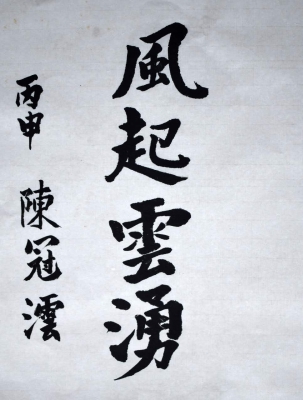 風起雲湧
丙申 陳冠澐